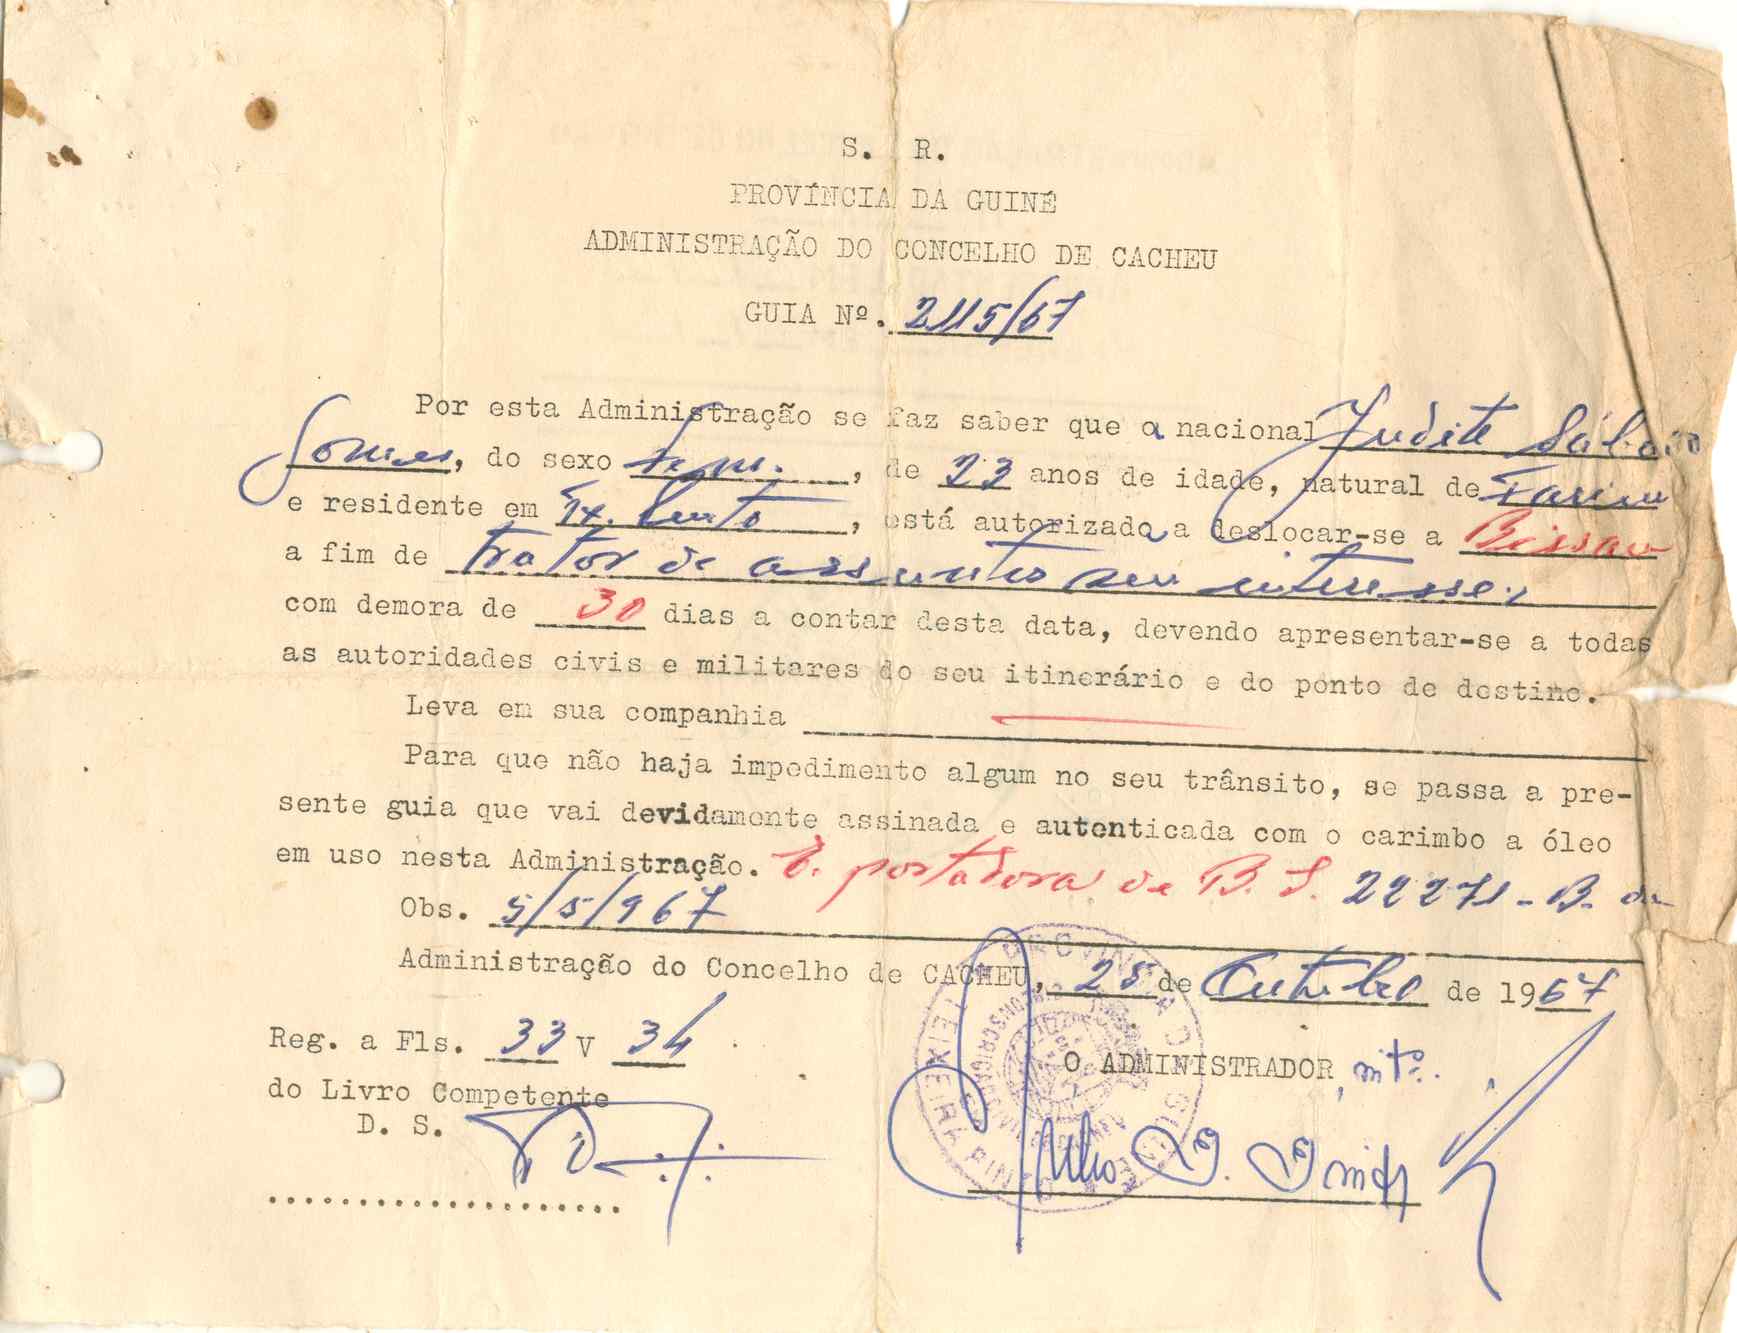 S. R.
PROVÍNCIA DA GUINÉ
ADMINISTRAÇÃO DO CONCELHO DE CACHEU
GUIA Nº. 2115/67
Por esta Administração se faz saber que a nacional Judite
Gomes, do sexo fem., de 23 anos de idade, natural de Farim
e residente em, está autorizada a deslocar-se a Bissau
a fim de tratar de assuntos seu interesse,
com demora de 30 dias a contar desta data, devendo apresentar-se a todas
as autoridades civis e militares do seu itinerário e do ponto de destino.
Leva em sua companhia
Para que não haja impedimento algum no seu trânsito, se passa a pre-
sente guia que vai devidamente assinada e autenticada com o carimbo a óleo
em uso nesta Administração. É portadora de B. I. 22271-B. de
Obs. 5/5/967
Administração do Concelho de CACHEU, 25 de Outubro de 1967
Reg. a Fls. 33 V 34
O ADMINISTRADOR, intº.
do Livro Competente
D. S.
PROVÍNCIA DA GUINÉ
TEIXEIRA PINTO